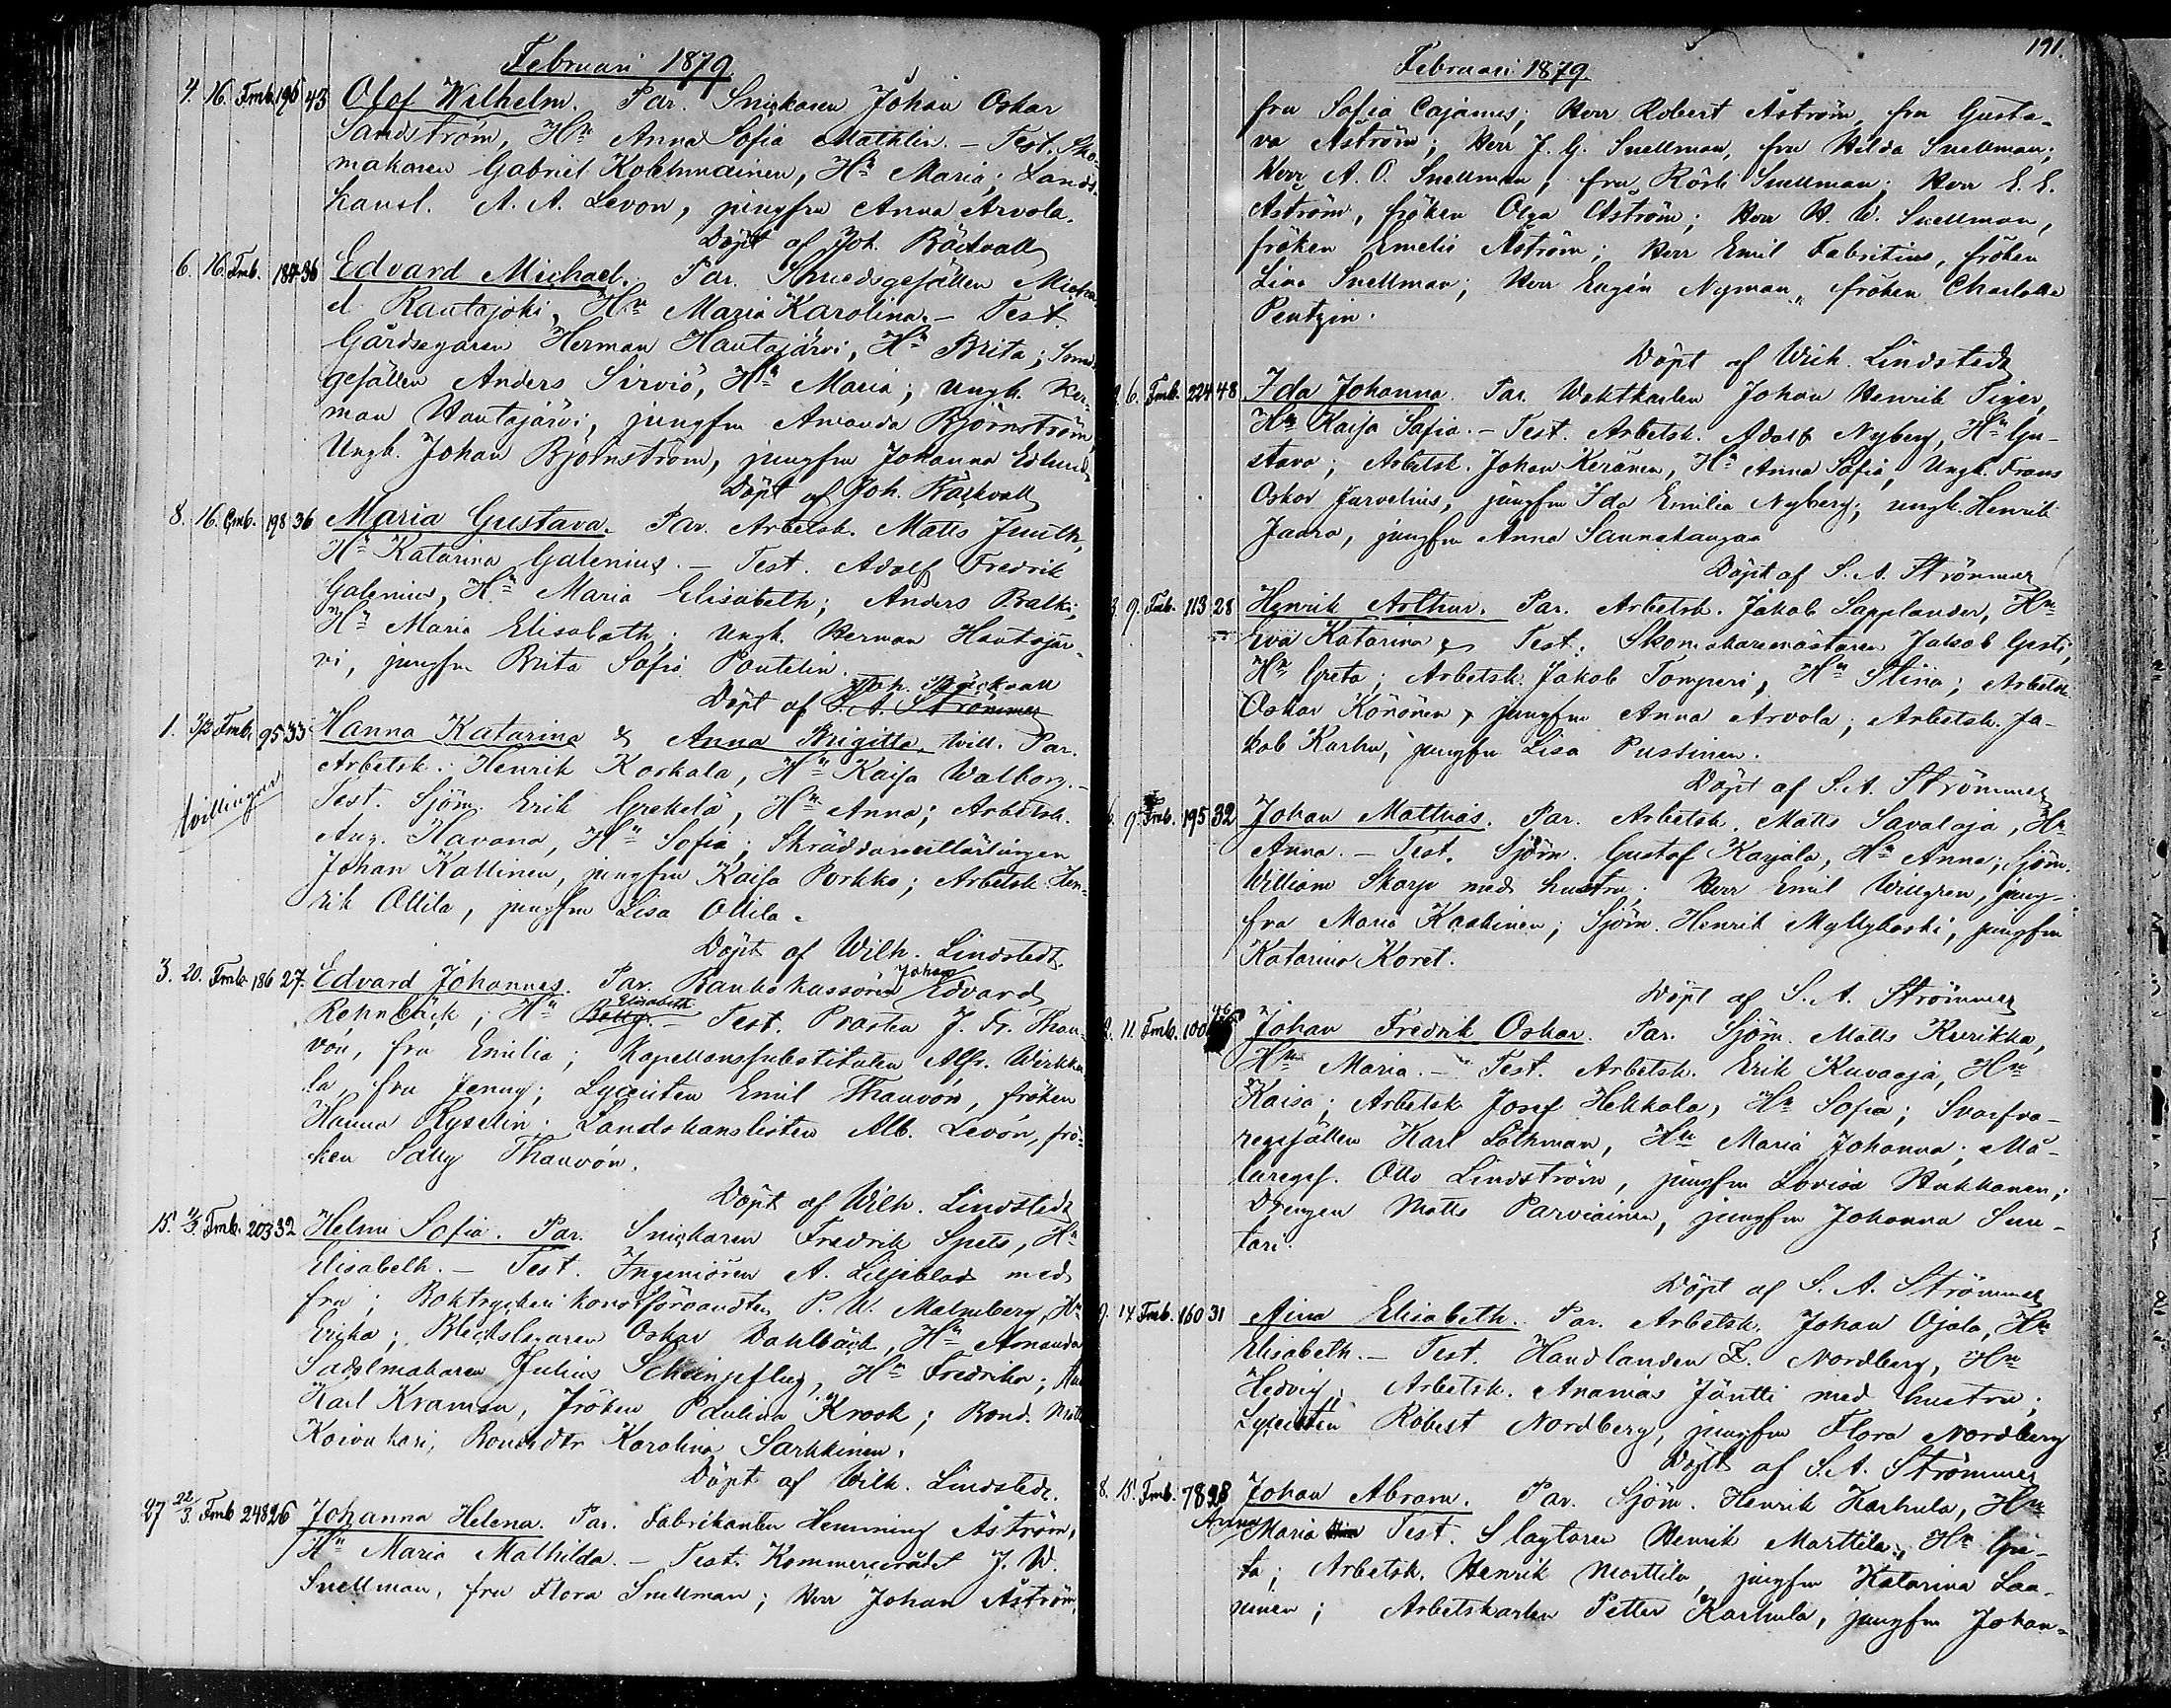 Februari 1879.
4. 16. Fmb. 196 43 Olof Wilhelm. Par. Snickaren Johan Oskar
Sandström, Hn Anna Sofia Mathlin. – Test. Sko-
makaren Gabriel Kolehmainen, Hn Maria; Lands-
kansl. A. A. Levon, jungfru Anna Arvola.
Döpt af Joh. Bäckvall
6. 16. Fmb. 187 36 Edvard Michael. Par. Smedsgesällen Micha-
el Rautajoki, Hn Maria Karolina. – Test.
Gårdsegaren Herman Hautajärvi, Hn Brita; Smed
gesällen Anders Sirviö, Hn Maria; Ungk. Her-
man Hautajärvi, jungfru Amanda Björnström,
Ungk. Johan Björnström, jungfru Johanna Edlund
Döpt af Joh. Bäckvall
8. 16. Qmb. 198 36 Maria Gustava. Par. Arbetsk. Matts Junth,
Hn Katarina Galenius. – Test. Adolf Fredrik
Galenius, Hn Maria Elisabeth; Anders Bralki,
Hn Maria Elisabeth; Ungk. Herman Hautajär-
vi, jungfru Brita Sofia Pontelin.
Joh. Bäckvall
Döpt af S. A. Strömmer
1. 3/2 Fmb. 95 33 Hanna Katarina & Anna Brigitta, tvill. Par.
Arbetsk. Henrik Korkala, Hn Kaisa Walborg. –
tvillingar
Test. Sjöm. Erik Grekelä, Hn Anna; Arbetsk.
Aug. Havana, Hn Sofia; Skräddarelärlingen
Johan Kallinen, jungfru Kaisa Porkka; Arbetsk. Hen-
rik Ollila, jungfru Lisa Ollila.
Döpt af Wilh. Lindstedt.
3. 20. Fmb. 186 27. Edvard Johannes. Par. Bankokassören Johan Edvard
Rehnbäck, Hn Betty Elisabeth. – Test. Prosten J. Fr. Thau-
vón, fru Emilia; Kapellanssubstituten Alfr. Wirkku-
la, fru Jenny; Lyceisten Emil Thauvón, fröken
Hanna Ryselin; Landskanslisten Alb. Levón, frö-
ken Sally Thauvón.
Döpt af Wilh. Lindstedt
15. 11/3 Fmb. 203 32 Helmi Sofia. Par. Snickaren Fredrik Spets, Hn
Elisabeth. – Test. Ingeniören A. Liljeblad med
fru; Boktryckeri konstförvandten P. W. Malmberg, Hn
Ericka; Bleckslagaren Oskar Dahlbäck, Hn Amanda
Sadelmakaren Julius Scheinpflug, Hn Fredrika;
Karl Kraman, Fröken Paulina Krook; Bond. Matts
Koivukari, Bondedtr Karolina Sarkkinen.
Döpt af Wilh. Lindstedt.
27 22/3. Fmb 248 26 Johanna Helena. Par. Fabrikanten Hemming Åström,
Hn Maria Mathilda. – Test. Kommerserådet J. W.
Snellman, fru Flora Snellman; Herr Johan Åström,
191.
Februari 1879.
fru Sofia Cajanus; Herr Robert Åström, fru Gusta-
va Åström; Herr J. G. Snellman, fru Hilda Snellman;
Herr A. O. Snellman, fru Snellman; Herr E. E.
Åström, fröken Olga Åström; Herr H. W. Snellman,
fröken Emelie Åström; Herr Emil Fabritius, fröken
Lina Snellman; Herr Eugén Nyman, fröken Charlotta
Pentzin.
Döpt af Wilh. Lindstedt
6. Fmb. 224 48 Ida Johanna. Par. Waktkarlen Johan Henrik Tiger,
Hn Kaisa Sofia. – Test. Arbetsk. Adolf Nyberg, Hn Gu-
stava; Arbetsk. Johan Keränen, Hn Anna Sofia; Ungk. Frans
Oskar Jurvelius, jungfru Ida Emilia Nyberg; ungk. Henrik
Jaara, jungfru Anna Saunakangas
Döpt af S. A. Strömmer
9. Fmb. 113 28 Henrik Arthur. Par. Arbetsk. Jakob Sapplander, Hn
Eva Katarina. Test. Skomakaremästaren Jakob Gesti,
Hn Greta; Arbetsk. Jakob Tomperi, Hn Stina; Arbetsk.
Oskar Könönen, jungfru Anna Arvola; Arbetsk. Ja-
kob Karhu, jungfru Lisa Pussinen.
Döpt af S. A. Strömmer
6. 9. Fmb. 195 32 Johan Matthias. Par. Arbetsk. Matts Savalaja, Hn
Anna. – Test. Sjöm. Gustaf Karjala, Hn Anna; Sjöm.
William Skarp med hustru; Herr Emil Willgren, jung-
fru Maria Kaakinen; Sjöm. Henrik Myllykoski, jungfru
Katarina Koret.
Döpt af S. A. Strömmer
11. Fmb. 100 Johan Fredrik Oskar. Par. Sjöm. Matts Kurikka,
Hn Maria. – Test. Arbetsk. Erik Kuvaaja, Hn
Kaisa; Arbetsk. Josef Hekkala, Hn Sofia; Svarfva-
regesällen Karl Löthman, Hn Maria Johanna; Må-
laregef. Otto Lindström, jungfru Lovisa Hukkanen;
Drengen Matts Parviainen, jungfru Johanna Suu-
tari.
Döpt af S. A. Strömmer
9. 14. Fmb. 160 31 Aina Elisabeth. Par. Arbetsk. Johan Ojala, Hn
Elisabeth. – Test. Handlanden Z. Nordberg, Hn
Hedvig; Arbetsk. Ananias Jäntti med hustru;
Lyceisten Robert Nordberg, jungfru Flora Nordberg
Döpt af S. A. Strömmer
8. 15. Fmb. 78 28 Johan Abram. Par. Sjöm. Henrik Karhula, Hn
Anna Maria Test. Slagtaren Henrik Marttila, Hn Gre-
ta; Arbetsk. Henrik Marttila, jungfru Katarina Laa-
nen; Arbetskarlen Petter Karhula, jungfru Johan-